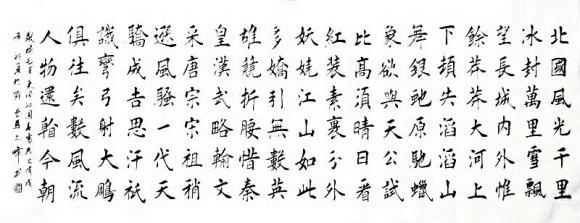 北國風光千里
冰封萬里雪飄
望長城內外惟
餘莽莽大河上
下頓失滔滔山
舞銀蛇原馳蠟
象欲與天公試
比高須晴日看
紅裝素裹分外
妖嬈江山如此
多嬌引無數英
雄競折腰惜秦
皇漢武略輸文
采唐宗宋祖稍
遜風騷一代天
驕成吉思汗祇
識彎弓射大鵰
俱往矣數風流
人物還看今朝